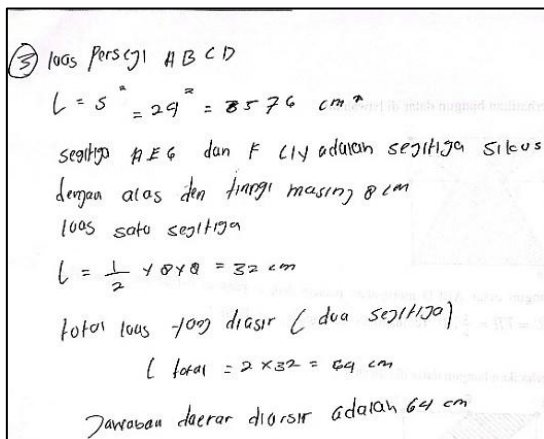 ③ luas Persegi ABCD
L = s² = 24² = 576 cm²
segitiga AEG dan F CH adalah segitiga sikus
dengan alas den tinggi masing 8 cm
luas satu segitiga
L = 1/2 x 8 x 8 = 32 cm
total luas yang diasir (dua segitiga)
L total = 2 x 32 = 64 cm
Jawaban daerar diarsir adalah 64 cm